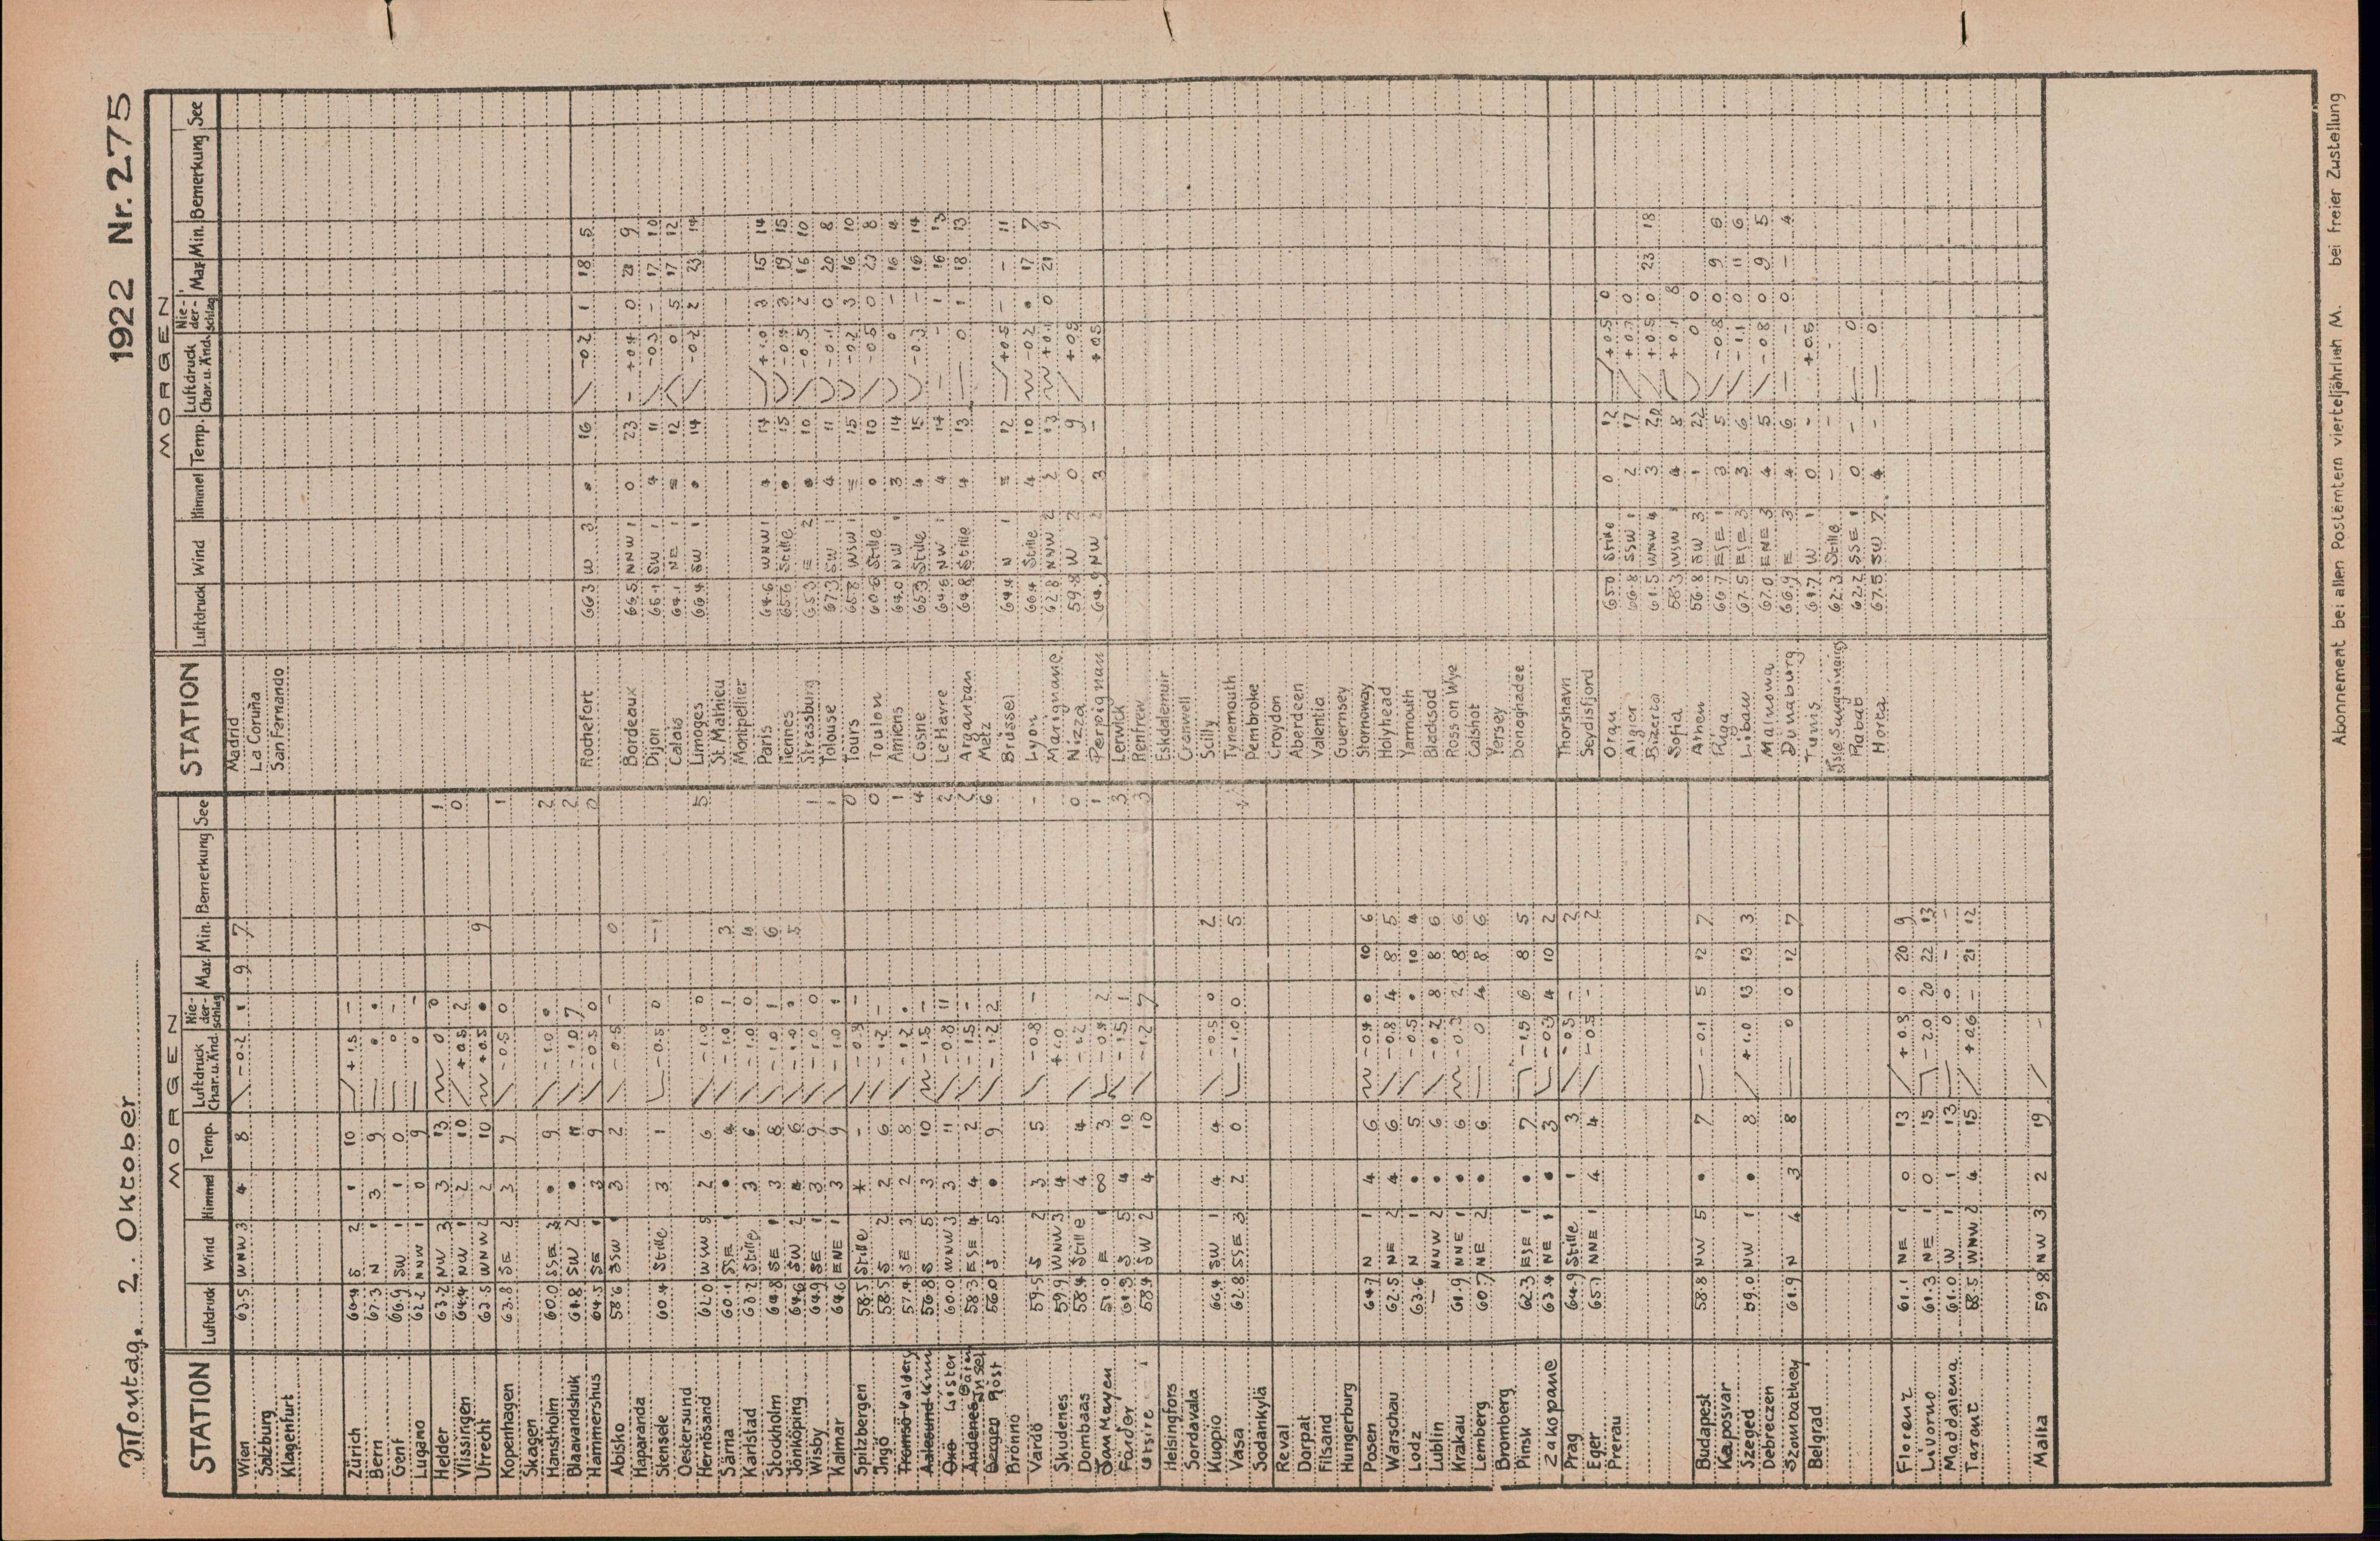 Montag, 2. Oktober
1922 Nr. 275
MORGEN
STATION Luftdruck Wind Himmel Temp. Luftdruck Char. u. Änd. Nie-der-schlag Max. Min. Bemerkung See
Wien 63.5 WNW 3 4 8 -0.2 9 7
Salzburg
Klagenfurt
Zürich S 2 1 10 +1.5 -
Bern 67.3 N 1 3 9
Genf 66.9 SW 1 1 0 0 -
Lugano 62.2 NNW 1 0 9 0 -
Helder 63.2 NW 3 3 13 0 0 1
Vlissingen 64.4 NW 1 2 10 +0.5 2 0
Utrecht 63.5 WNW 2 2 10 +0.5 • 9
Kopenhagen 63.8 SE 2 3 7 -0.5 0 1
Skagen
Hanstholm 60.0 SSE • 9 -1.0 2
Blaavandshuk 61.8 SW 2 • 11 -1.0 7 2
Hammershus 64.5 SE 1 3 9 -0.5 0 0
Abisko 58.6 SSW 1 3 2 -0.5 - 0
Haparanda
Stensele 60.4 Stille 3 1 -0.5 0
Oestersund
Hernösand 62.0 WSW 5 2 6 -1.0 0 5
Särna 60.1 SSE 1 • 4 -1.0 1 3
Karlstad 63.2 Stille 3 6 -1.0 0 4
Stockholm 64.8 SE 1 3 8 -1.0 1 6
Jönköping 64.6 SW 2 4 6 -1.0 5
Wisby 64.9 SE 1 3 9 -1.0 0 1
Kalmar 64.6 ENE 1 3 9 -1.0 1 1
Spitzbergen 58.5 Stille * - -0.3 - 0
Ingö 58.5 S 2 2 6 -1.2 - 0
Tromsö Valdery 57.4 SE 3 2 8 -1.2 • 1
Aalesund 56.8 S 5 3 10 -1.5 - 4
Oxö Lister 60.0 WNW 3 3 11 -0.8 11 2
Andenes 58.3 ESE 4 4 2 -1.5 - 2
Bergen Röst 56.0 S 5 • 9 -1.2 2 6
Brönnö
Vardö 59.5 S 2 3 5 -0.8 - -
Skudenes 59.9 WNW 3 4 +1.0
Dombaas 58.4 Stille 4 4 -1.2 0
Jan Mayen 51.0 E 1 ∞ 3 -0.4 2 1
Färder 61.3 S 5 4 10 -1.5 1 3
Utsire 58.4 SW 2 4 10 -1.2 7 3
Helsingfors
Sordavala
Kuopio 66.4 SW 1 4 4 -0.5 0 2
Vasa 62.8 SSE 3 2 0 -1.0 0 5
Sodankylä
Reval
Dorpat
Filsand
Hungerburg
Posen 64.7 N 1 4 6 -0.4 • 10 6
Warschau 62.5 NE 2 4 6 -0.8 4 8 5
Lodz 63.6 N 1 • 5 -0.5 • 10 4
Lublin — NNW 2 • 6 -0.2 8 8 6
Krakau 61.9 NNE 1 • 6 -0.3 2 8 6
Lemberg 60.7 NE 2 • 6 0 4 8 6
Bromberg
Pinsk 62.3 ESE 1 • 7 -1.5 6 8 5
Zakopane 63.4 NE 1 • 3 -0.3 4 10 2
Prag 64.9 Stille 1 3 -0.5 - 2
Eger 65.7 NNE 1 4 4 -0.5 - 2
Prerau
Budapest 58.8 NW 5 • 7 -0.1 5 12 7
Kaposvar
Szeged 59.0 NW 1 • 8 +1.0 13 13 3
Debreczen
Szombathey 61.9 N 4 3 8 0 0 12 7
Belgrad
Florenz 61.1 NE 1 0 13 +0.3 0 20 9
Livorno 61.3 NE 1 0 15 -2.0 20 22 13
Maddalena 61.0 W 1 1 13 0 0 - -
Tarent 58.5 WNW 2 4 15 +0.6 - 21 12
Malta 59.8 NW 3 2 19 -
MORGEN
STATION Luftdruck Wind Himmel Temp. Luftdruck Char. u. Änd. Nie-der-schlag Max. Min. Bemerkung See
Madrid
La Coruña
San Fernando
Rochefort 66.3 W 3 • 16 -0.2 1 18 5
Bordeaux 66.5 NNW 1 0 23 +0.4 0 9
Dijon 66.1 SW 1 4 11 -0.3 - 17 10
Calais 64.1 NE 1 ≡ 12 0 5 17 12
Limoges 66.4 SW 1 • 14 -0.2 2 23 14
St. Mathieu
Montpellier
Paris 64.6 WNW 1 4 14 +1.0 3 15 14
Rennes 65.6 Stille • 15 -0.4 3 19 15
Strassburg 65.3 E 2 • 10 -0.5 2 16 10
Tolouse 67.3 SW 1 4 11 -0.1 0 20 8
Tours 65.8 WSW 1 ≡ 15 -0.2 3 16 10
Toulon 60.6 Stille 0 10 -0.5 0 23 8
Amiens 64.0 NW 1 3 14 0 - 16 8
Cosne 65.3 Stille 4 15 -0.3 - 16 14
Le Havre 64.6 NW 1 4 14 - 1 16 13
Argentan 64.8 Stille 4 13 0 1 18 13
Metz
Brüssel 64.4 N 1 ≡ 12 +0.5 - - 11
Lyon 66.4 Stille 4 10 -0.2 • 17 7
Marignane 62.8 NNW 2 2 13 +0.1 0 21 9
Nizza 59.8 W 2 0 9 +0.5
Perpignan 64.9 NW 2 3 - +0.5
Lerwick
Renfrew
Eskdalemuir
Cranwell
Scilly
Tynemouth
Pembroke
Croydon
Aberdeen
Valentia
Guernsey
Stornoway
Holyhead
Yarmouth
Blacksod
Ross on Wye
Calshot
Yersey
Donaghadee
Thorshavn
Seydisfjord
Oran 65.0 Stille 0 12 +0.5 0
Algier 66.8 SSW 1 2 17 +0.7 0
Bizerta 61.5 WNW 4 3 20 +0.5 0 23 18
Sofia 58.3 WSW 1 4 8 +0.1 8
Athen 56.8 SW 3 1 22 0 0
Riga 66.7 ESE 1 3 5 -0.8 0 9 6
Libau 67.5 ESE 3 3 6 -1.1 0 11 6
Malnowa 67.0 ENE 3 4 5 -0.8 0 9 5
Dunaburg 66.9 E 3 4 6 - 0 - 4
Tunis 61.7 W 1 0 - +0.5
Isle Sanguinaires 62.3 Stille - - -
Rabat 62.2 SSE 1 0 - 0
Horta 67.5 SW 7 4 - 0
Abonnement bei allen Postämtern vierteljährlich M. bei freier Zustellung